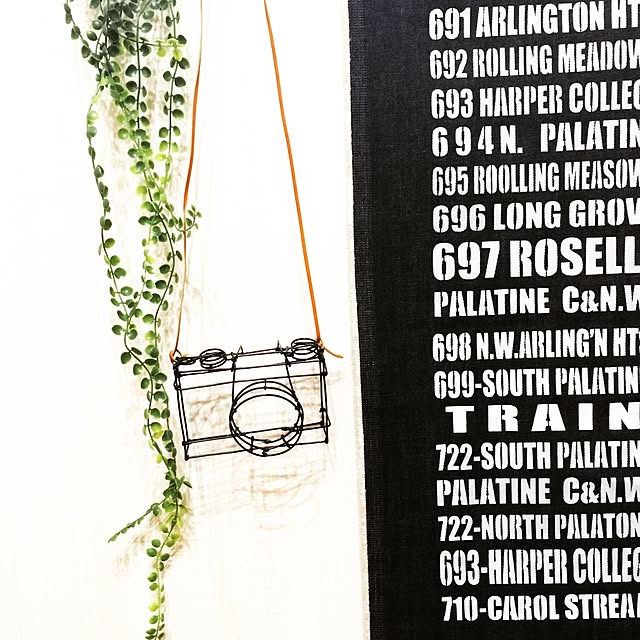 691 ARLINGTON HT
692 ROLLING MEADOW
693 HARPER COLLEG
694 N. PALATIN
695 ROOLLING MEASOW
696 LONG GROV
697 ROSELL
PALATINE C&N.W
698 N.W.ARLING'N HTS
699-SOUTH PALATIN
TRAIN
722-SOUTH PALATIN
PALATINE C&N.W
722-NORTH PALATON
693-HARPER COLLEG
710-CAROL STREA